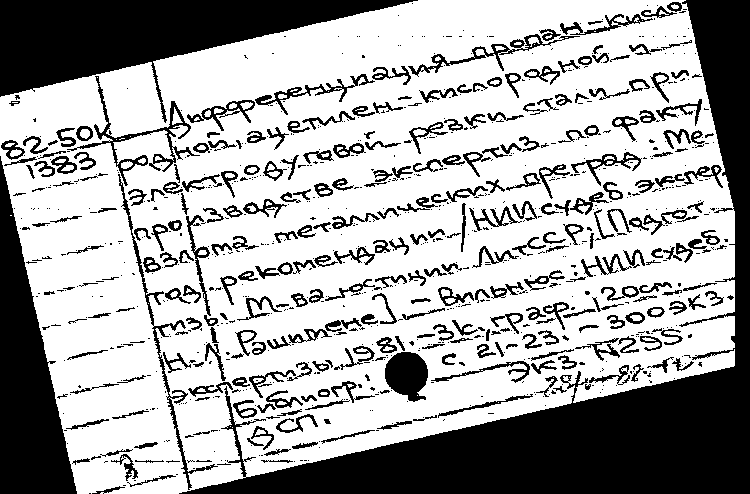 82-50К
1383
Дифференциация пропан-кисло-
родной, ацетилен-кислородной и
электродуговой резки стали при
производстве экспертиз по факту
взлома металлических преград: Ме-
тод. рекомендации / НИИ судеб. экспер-
тизы М-ва юстиции ЛитССР; [Подгот.
Н.Л. Рашитене]. - Вильнюс: НИИ судеб.
экспертизы, 1981. - 31с., граф.; 20см.
Библиогр.: с. 21-23. - 300экз.
ДСП. Экз. N295.